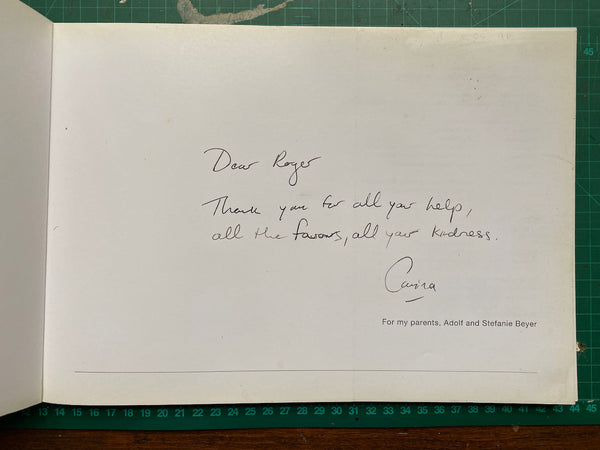 Dear Roger
Thank you for all your help,
all the favours, all your kindness.
Carina
For my parents, Adolf and Stefanie Beyer
45
44
13 14 15 16 17 18 19 20 21 22 23 24 25 26 27 28 29 30 31 32 33 34 35 36 37 38 39 40 41 42 43 44 45